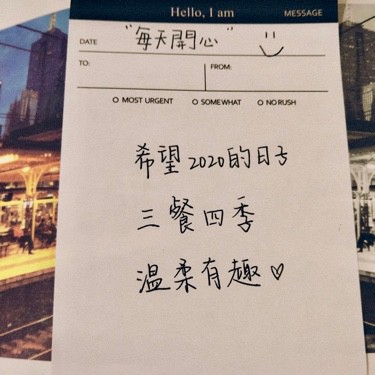 Hello, I am MESSAGE
DATE "每天開心"
TO: FROM:
MOST URGENT SOMEWHAT NO RUSH
希望2020的日子
三餐四季
温柔有趣